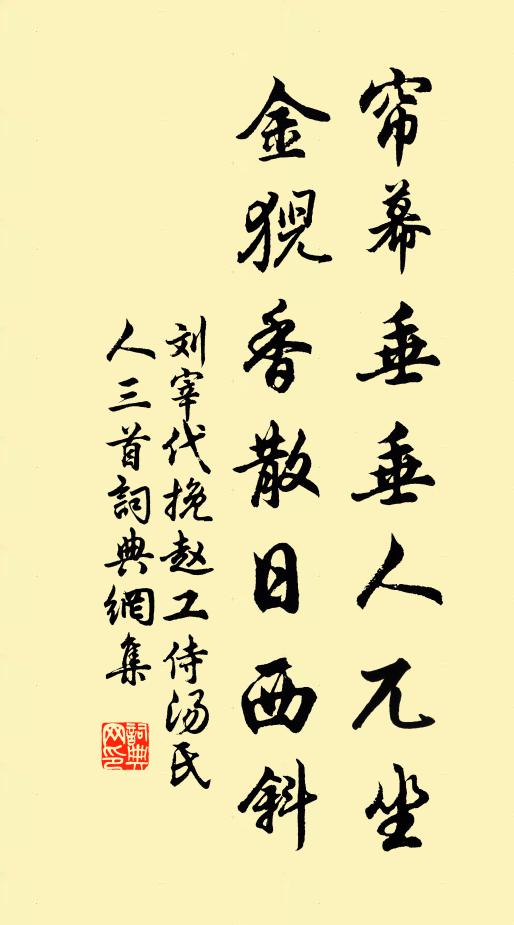 帘幕垂垂人兀坐
金猊香散日西斜
刘宰代挽赵工侍汤氏
人三首詞典網集
詞典
网印